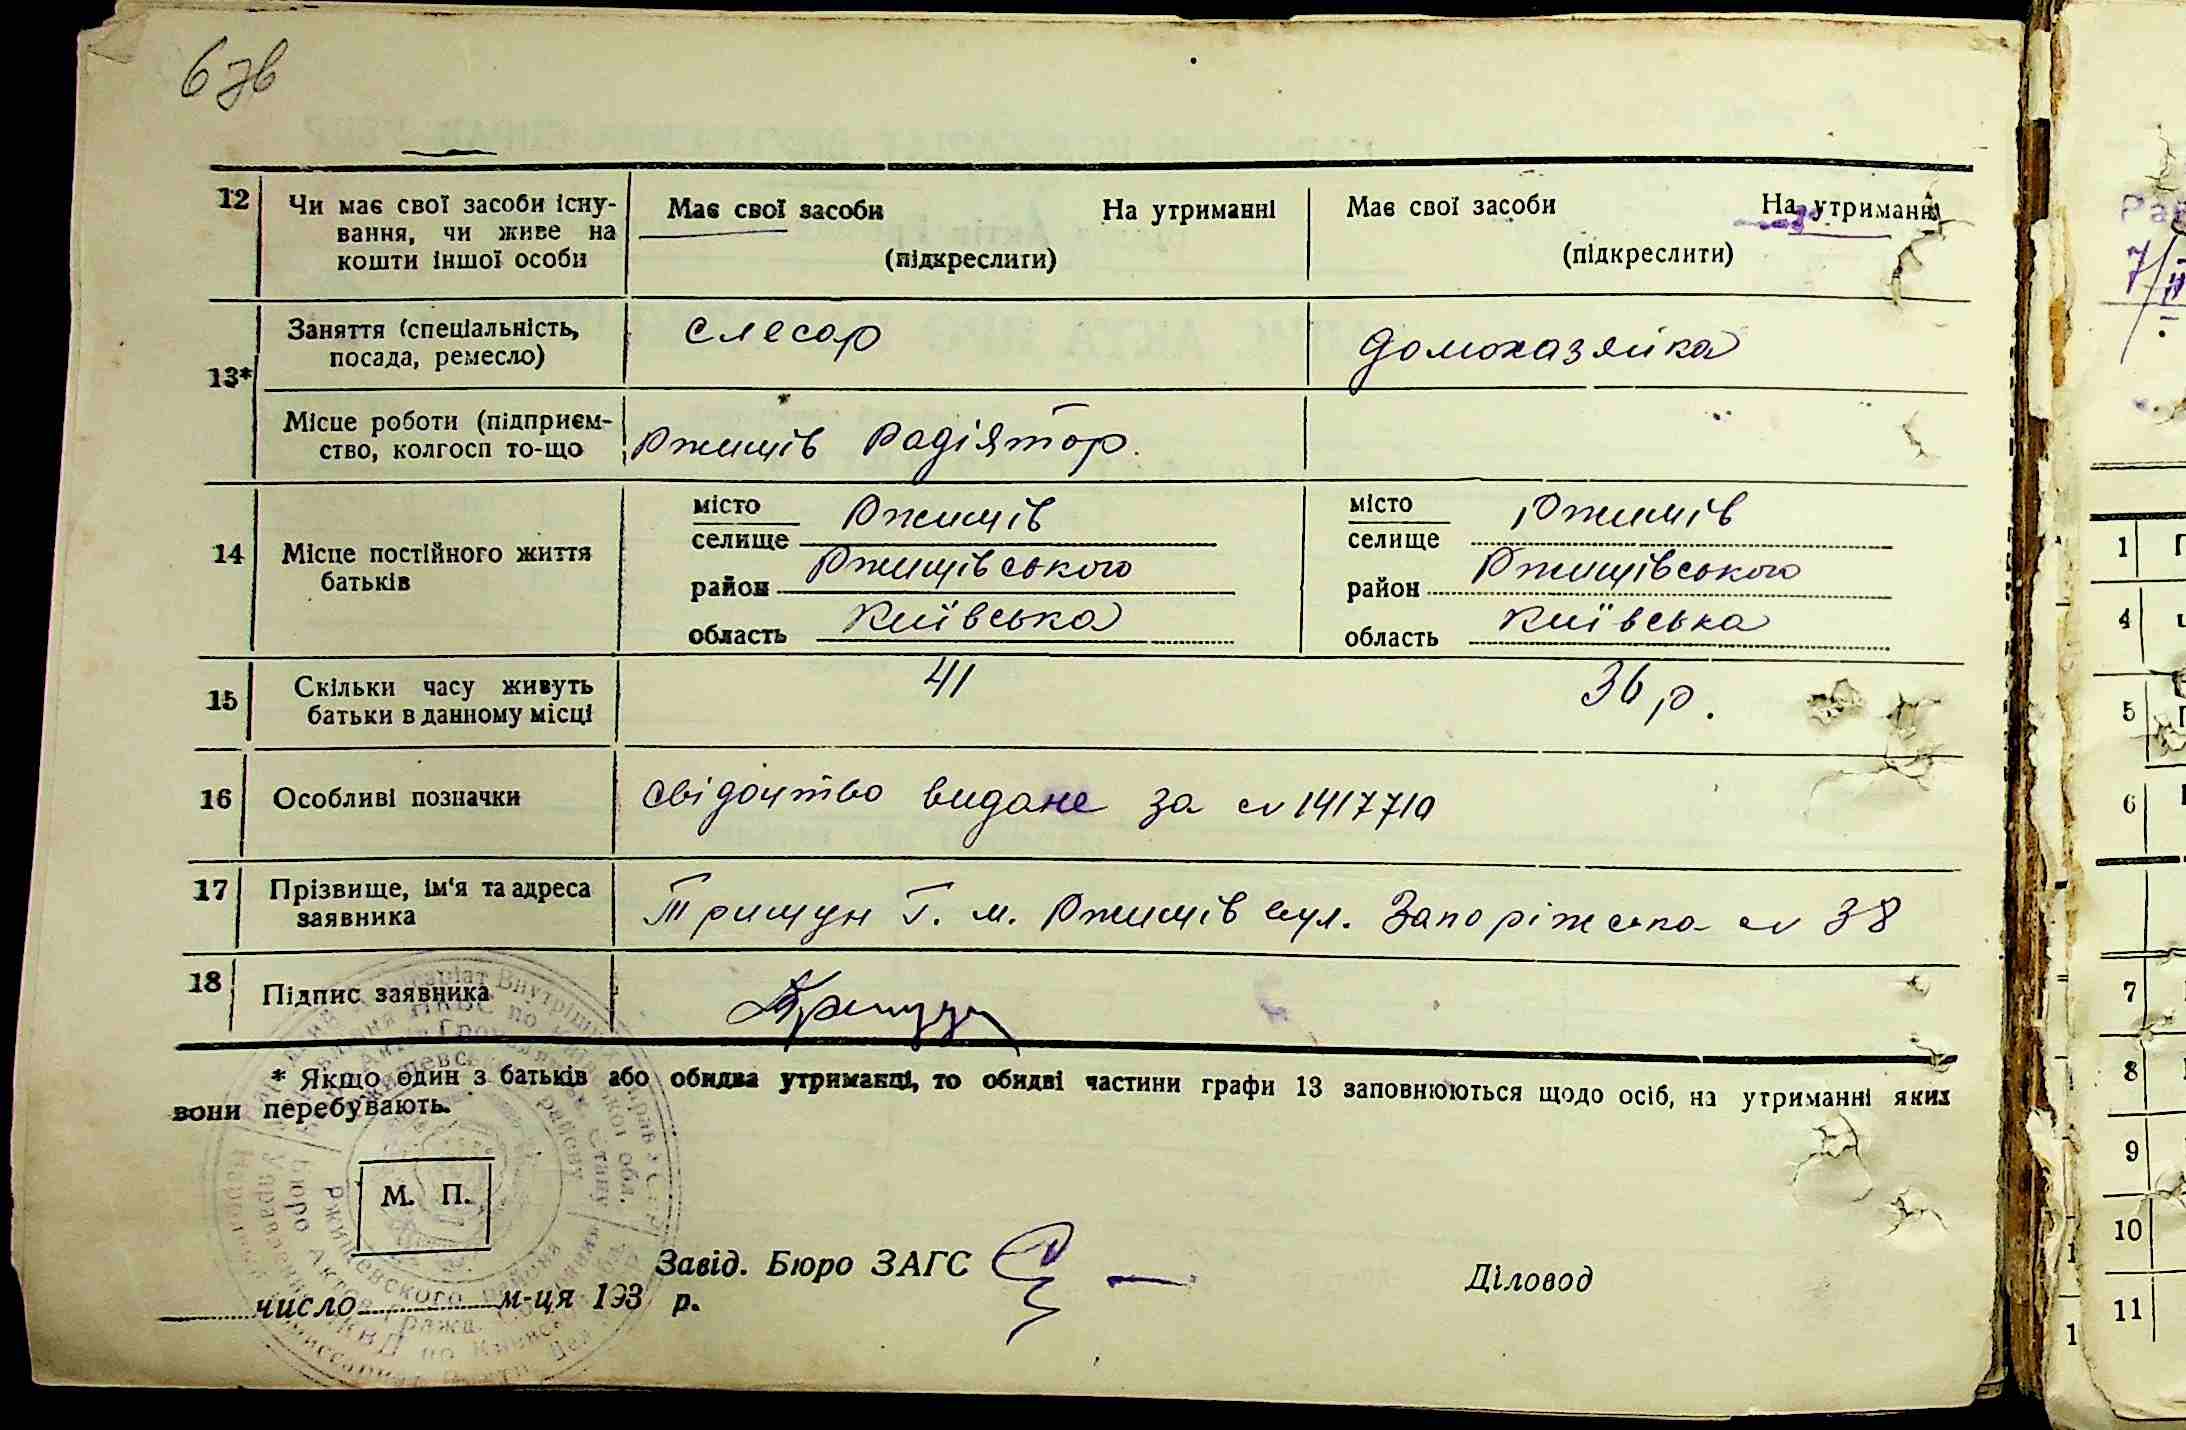 67в
12 Чи має свої засоби існу- Має свої засоби На утриманні Має свої засоби На утриманні
вання, чи живе на
кошти іншої особи (підкреслити) (підкреслити)
13* Заняття (спеціальність, слесар домохазяйка
посада, ремесло)
Місце роботи (підприєм- Ржищів Радіятор.
ство, колгосп то-що
14 Місце постійного життя місто Ржищів місто Ржищів
батьків селище селище
район Ржищівського район Ржищівського
область Київська область Київська
15 Скільки часу живуть 41 36 р.
батьки в данному місці
16 Особливі позначки свідоцтво видане за №
17 Прізвище, ім'я та адреса Трищун Г. м. Ржищів вул. Запоріжська № 38
заявника
18 Підпис заявника
* Якщо один з батьків або обидва утриманці, то обидві частини графи 13 заповнюються щодо осіб, на утриманні яких
вони перебувають.
М. П.
Завід. Бюро ЗАГС Діловод
число м-ця 193 р.
1
4
5
6
7
8
9
10
11